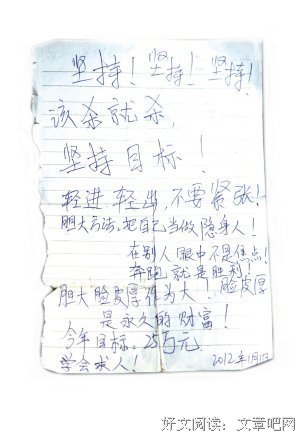 坚持!坚持!坚持!
该杀就杀,
坚持目标!
轻进轻出,不要紧张!
胆大方法,把自己当做隐身人!
在别人眼中不是焦点!
奔跑就是胜利!
胆大脸皮厚作为大!脸皮厚
是永久的财富!
今年目标,25万元
学会求人!
2012年1月1日
好文阅读:文章吧网